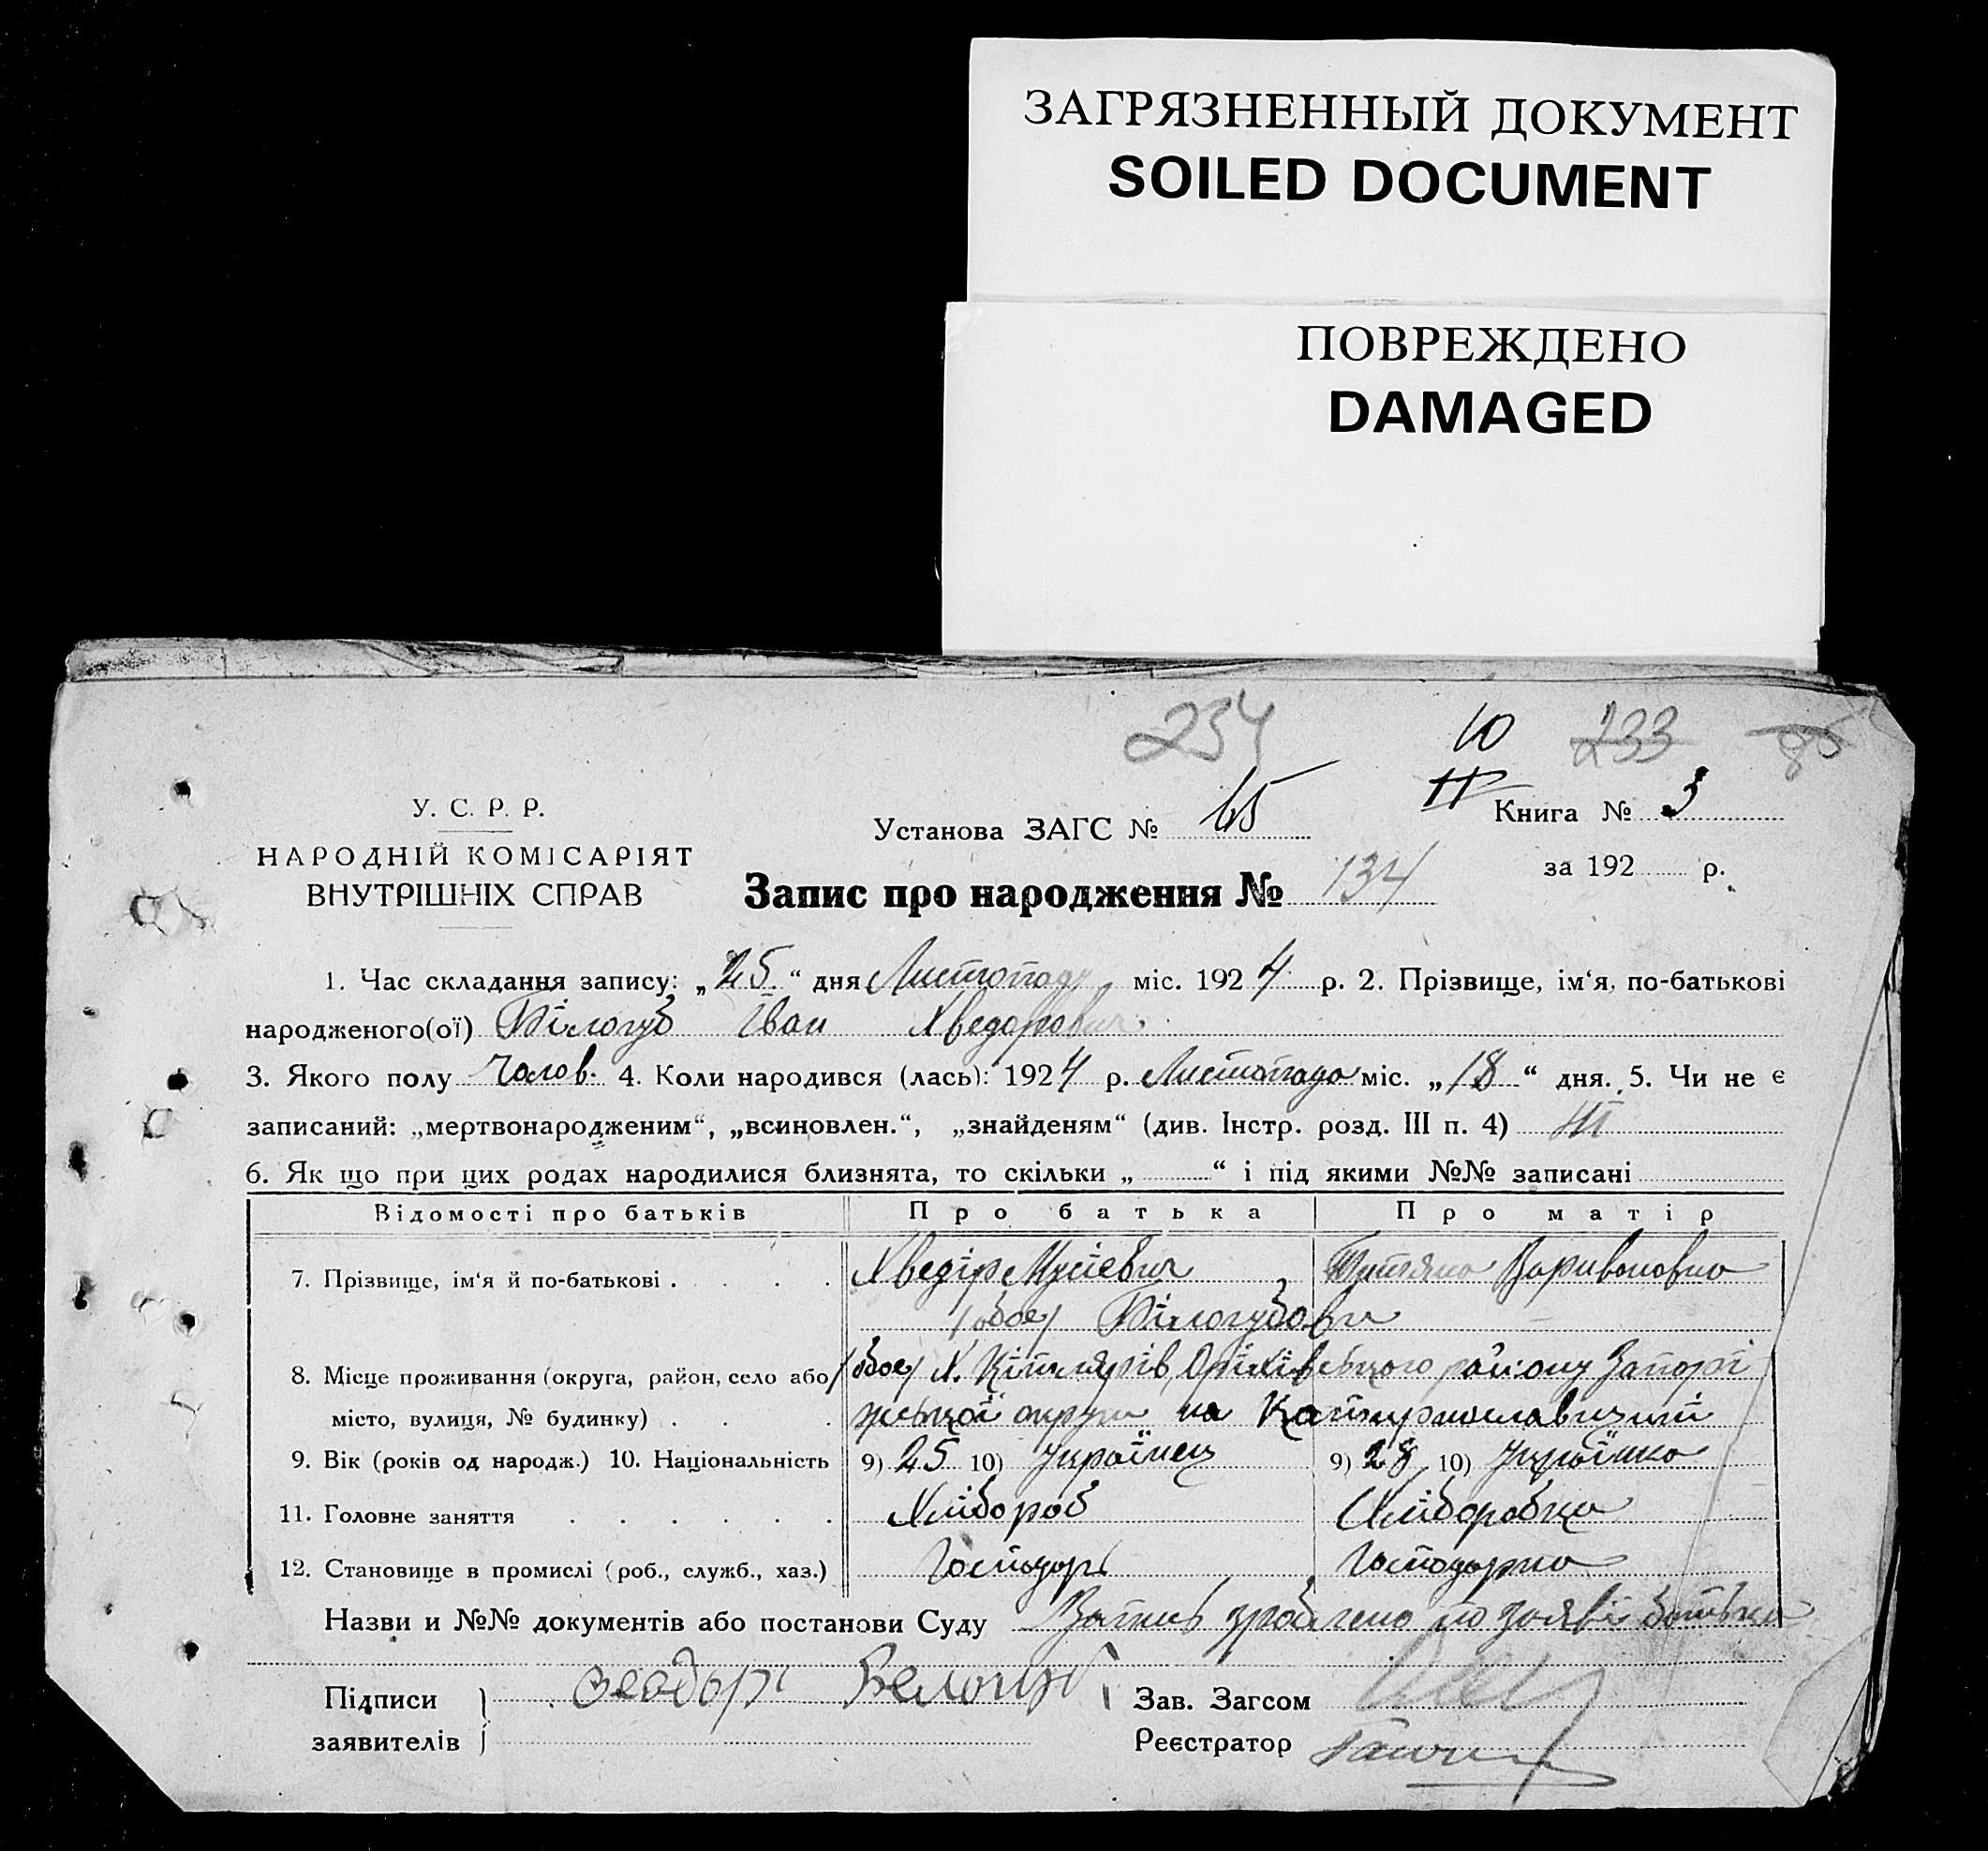 ЗАГРЯЗНЕННЫЙ ДОКУМЕНТ
SOILED DOCUMENT
ПОВРЕЖДЕНО
DAMAGED
234 10 233 85
У. С. Р. Р.
НАРОДНІЙ КОМІСАРІЯТ
ВНУТРІШНІХ СПРАВ
Установа ЗАГС № 65
11 Книга № 3
за 192 р.
Запис про народження № 134
1. Час складання запису: „25“ дня Листопаду міс. 1924 р. 2. Прізвище, ім‘я, по-батькові
народженого(ої) Білогуб Іван Хведорович
3. Якого полу Чолов. 4. Коли народився (лась): 1924 р. Листопада міс. „18“ дня. 5. Чи не є
записаний: „мертвонародженим“, „всиновлен.“, „знайденям“ (див. Інстр. розд. III п. 4) Ні
6. Як що при цих родах народилися близнята, то скільки „ “ і під якими №№ записані
Відомості про батьків Про батька Про матір
7. Прізвище, ім‘я й по-батькові Хведір Мусієвич Тетяна Варивоновна
/обоє/ Білогубови
8. Місце проживання (округа, район, село або /обоє/ Х. Оріхівського району Запорі
місто, вулиця, № будинку) жської округи на Катеринославщині
9. Вік (років од народж.) 10. Національність 9) 25 10) Українець 9) 28 10) Українка
11. Головне заняття Хлібороб Хліборобка
12. Становище в промислі (роб., служб., хаз.) Господарь Господарка
Назви и №№ документів або постанови Суду Запись зроблено по заяві батька
Підписи заявителів Белогуб
Зав. Загсом
Реєстратор